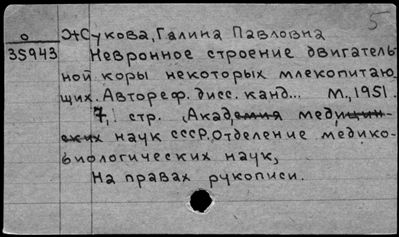 5
о Жукова, Галина Павловна
35943 Невронное строение двигатель
ной коры некоторых млекопитаю
щих. Автореф. дисс. канд... М., 1951.
7, стр. Академия медицин-
ских наук СССР. Отделение медико-
биологических наук,
На правах рукописи.